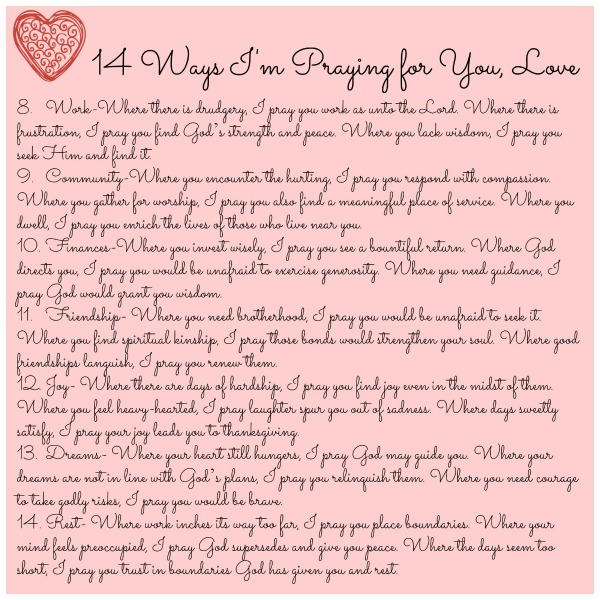 14 Ways I'm Praying for You, Love
8. Work-Where there is drudgery, I pray you work as unto the Lord. Where there is
frustration, I pray you find God's strength and peace. Where you lack wisdom, I pray you
seek Him and find it.
9. Community-Where you encounter the hurting, I pray you respond with compassion.
Where you gather for worship, I pray you also find a meaningful place of service. Where you
dwell, I pray you enrich the lives of those who live near you.
10. Finances-Where you invest wisely, I pray you see a bountiful return. Where God
directs you, I pray you would be unafraid to exercise generosity. Where you need guidance, I
pray God would grant you wisdom.
11. Friendship- Where you need brotherhood, I pray you would be unafraid to seek it.
Where you find spiritual kinship, I pray those bonds would strengthen your soul. Where good
friendships languish, I pray you renew them.
12. Joy- Where there are days of hardship, I pray you find joy even in the midst of them.
Where you feel heavy-hearted, I pray laughter spur you out of sadness. Where days sweetly
satisfy, I pray your joy leads you to thanksgiving.
13. Dreams- Where your heart still hungers, I pray God may guide you. Where your
dreams are not in line with God's plans, I pray you relinquish them. Where you need courage
to take godly risks, I pray you would be brave.
14. Rest- Where work inches its way too far, I pray you place boundaries. Where your
mind feels preoccupied, I pray God supersedes and give you peace. Where the days seem too
short, I pray you trust in boundaries God has given you and rest.